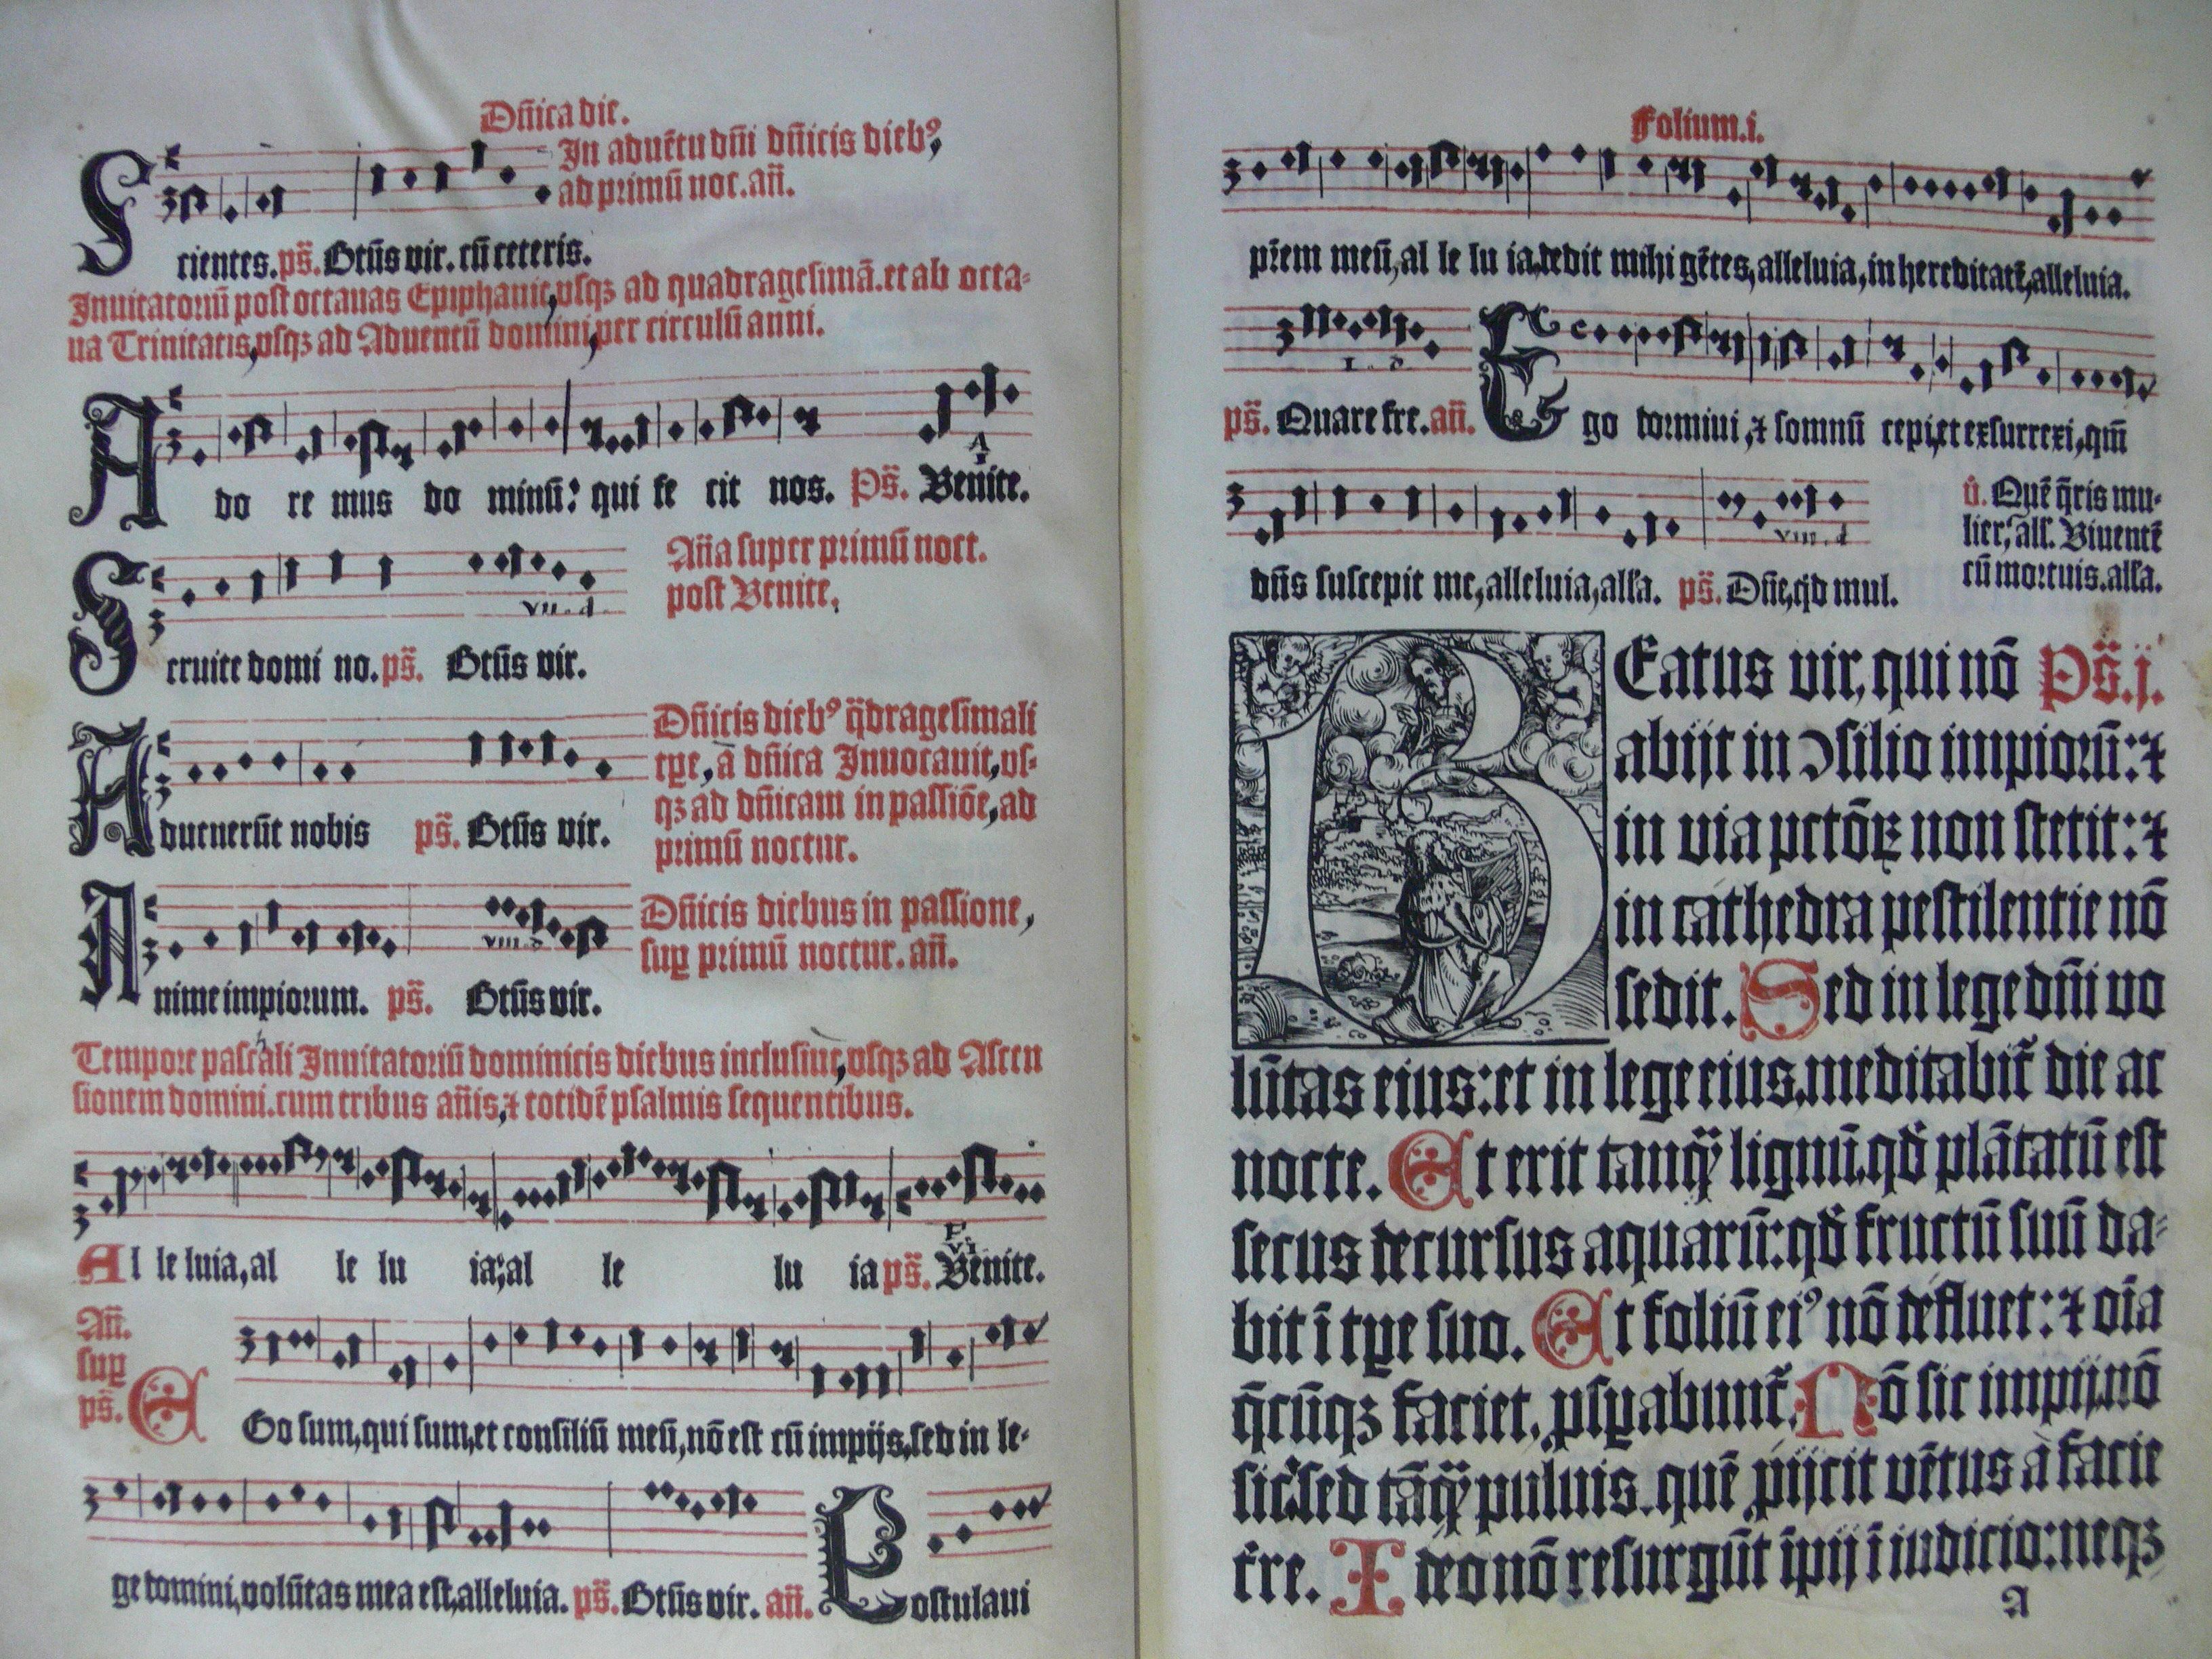 Dn̄ica die.
In aduētu dn̄i dn̄icis dieb⁹,
ad primū noc. an̄.
Scientes. ps̄. Btūs vir. cū ceteris.
Inuitatoriū post octauas Epiphanie, vsqꝫ ad quadragesimā. et ab octa-
ua Trinitatis, vsqꝫ ad Aduentū domini, per circulū anni.
Ado re mus do minū: qui fe cit nos. Ps̄. Venite.
An̄a super primū noct.
post Venite.
vii. d
Seruite domi no. ps̄. Btūs vir.
Dn̄icis dieb⁹ q̄dragesimali
tꝑe, a dn̄ica Inuocauit, vs-
qꝫ ad dn̄icam in passiōe, ad
primū noctur.
Aduenerūt nobis ps̄. Btūs vir.
Dn̄icis diebus in passione,
suꝑ primū noctur. an̄.
viii.
Anime impiorum. ps̄. Btūs vir.
Tempore pascali Inuitatoriū dominicis diebus inclusiue, vsqꝫ ad Ascen
sionem domini. cum tribus an̄is, ⁊ totidē psalmis sequentibus.
Al le luia, al le lu ia; al le lu ia ps̄. Venite.
An̄.
suꝑ
ps̄.
EGo sum, qui sum, et consiliū meū, nō est cū impijs, sed in le-
ge domini, volūtas mea est, alleluia. ps̄. Btūs vir. an̄. Postulaui
Folium. i.
pr̄em meū, al le lu ia, dedit mihi gētes, alleluia, in hereditatē, alleluia.
ps̄. Quare fre. an̄. Ego dormiui, ⁊ somnū cepi, et exsurrexi, qm̄
v̄. Quē q̄ris mu-
lier, all'. Viuentē
cū mortuis. all'a.
viii. d
dn̄s suscepit me, alleluia, all'a. ps̄. Dn̄e, qd mul.
BEatus vir, qui nō Ps̄. j.
abijt in ꝯsilio impiorū: ⁊
in via pctōꝝ non stetit: ⁊
in cathedra pestilentie nō
sedit. Sed in lege dn̄i vo
lūtas eius: et in lege eius, meditabit᷑ die ac
nocte. Et erit tanq̄ lignū, qd̄ plātatū est
secus decursus aquarū: qd̄ fructū suū da-
bit ī tꝑe suo. Et foliū ei⁹ nō defluet: ⁊ oīa
q̄cūqꝫ faciet, ꝓsꝑabunt᷑. Nō sic impij, nō
sic: sed tāq̄ puluis, quē ꝓijcit vētus a facie
tre. Ideo nō resurgūt īpij ī iudicio: neqꝫ
a